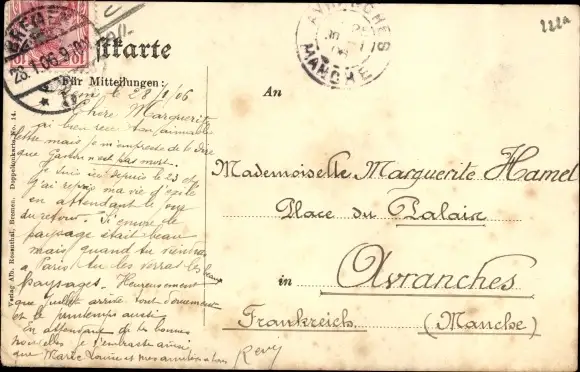 BREMEN
28.1.06.9-10
Postkarte
AVRANCHES
MANCHE
222a
Für Mitteilungen:
An
28/1/06
Chère Marguerite
ai bien reçu ton aimable
lettre mais je m'empresse de te dire
que Gaston n'est pas mort.
Je suis ici depuis le 23 et
j'ai repris ma vie d'exile
en attendant le jour
du retour. Si envoie de
paysage était beau
mais quand tu viendras
à Paris tu les verras les beaux
paysages. Heureusement
que juillet arrive tout doucement
et le printemps aussi
En attendant de tes bonnes
nouvelles je t'embrasse ainsi
que Marie Louise et mes amitiés à tous
Mademoiselle Marguerite Hamel
Place du Palais
in Avranches
Frankreich (Manche)
Verlag Alb. Rosenthal, Bremen. Doppeltonkarte No. 14.